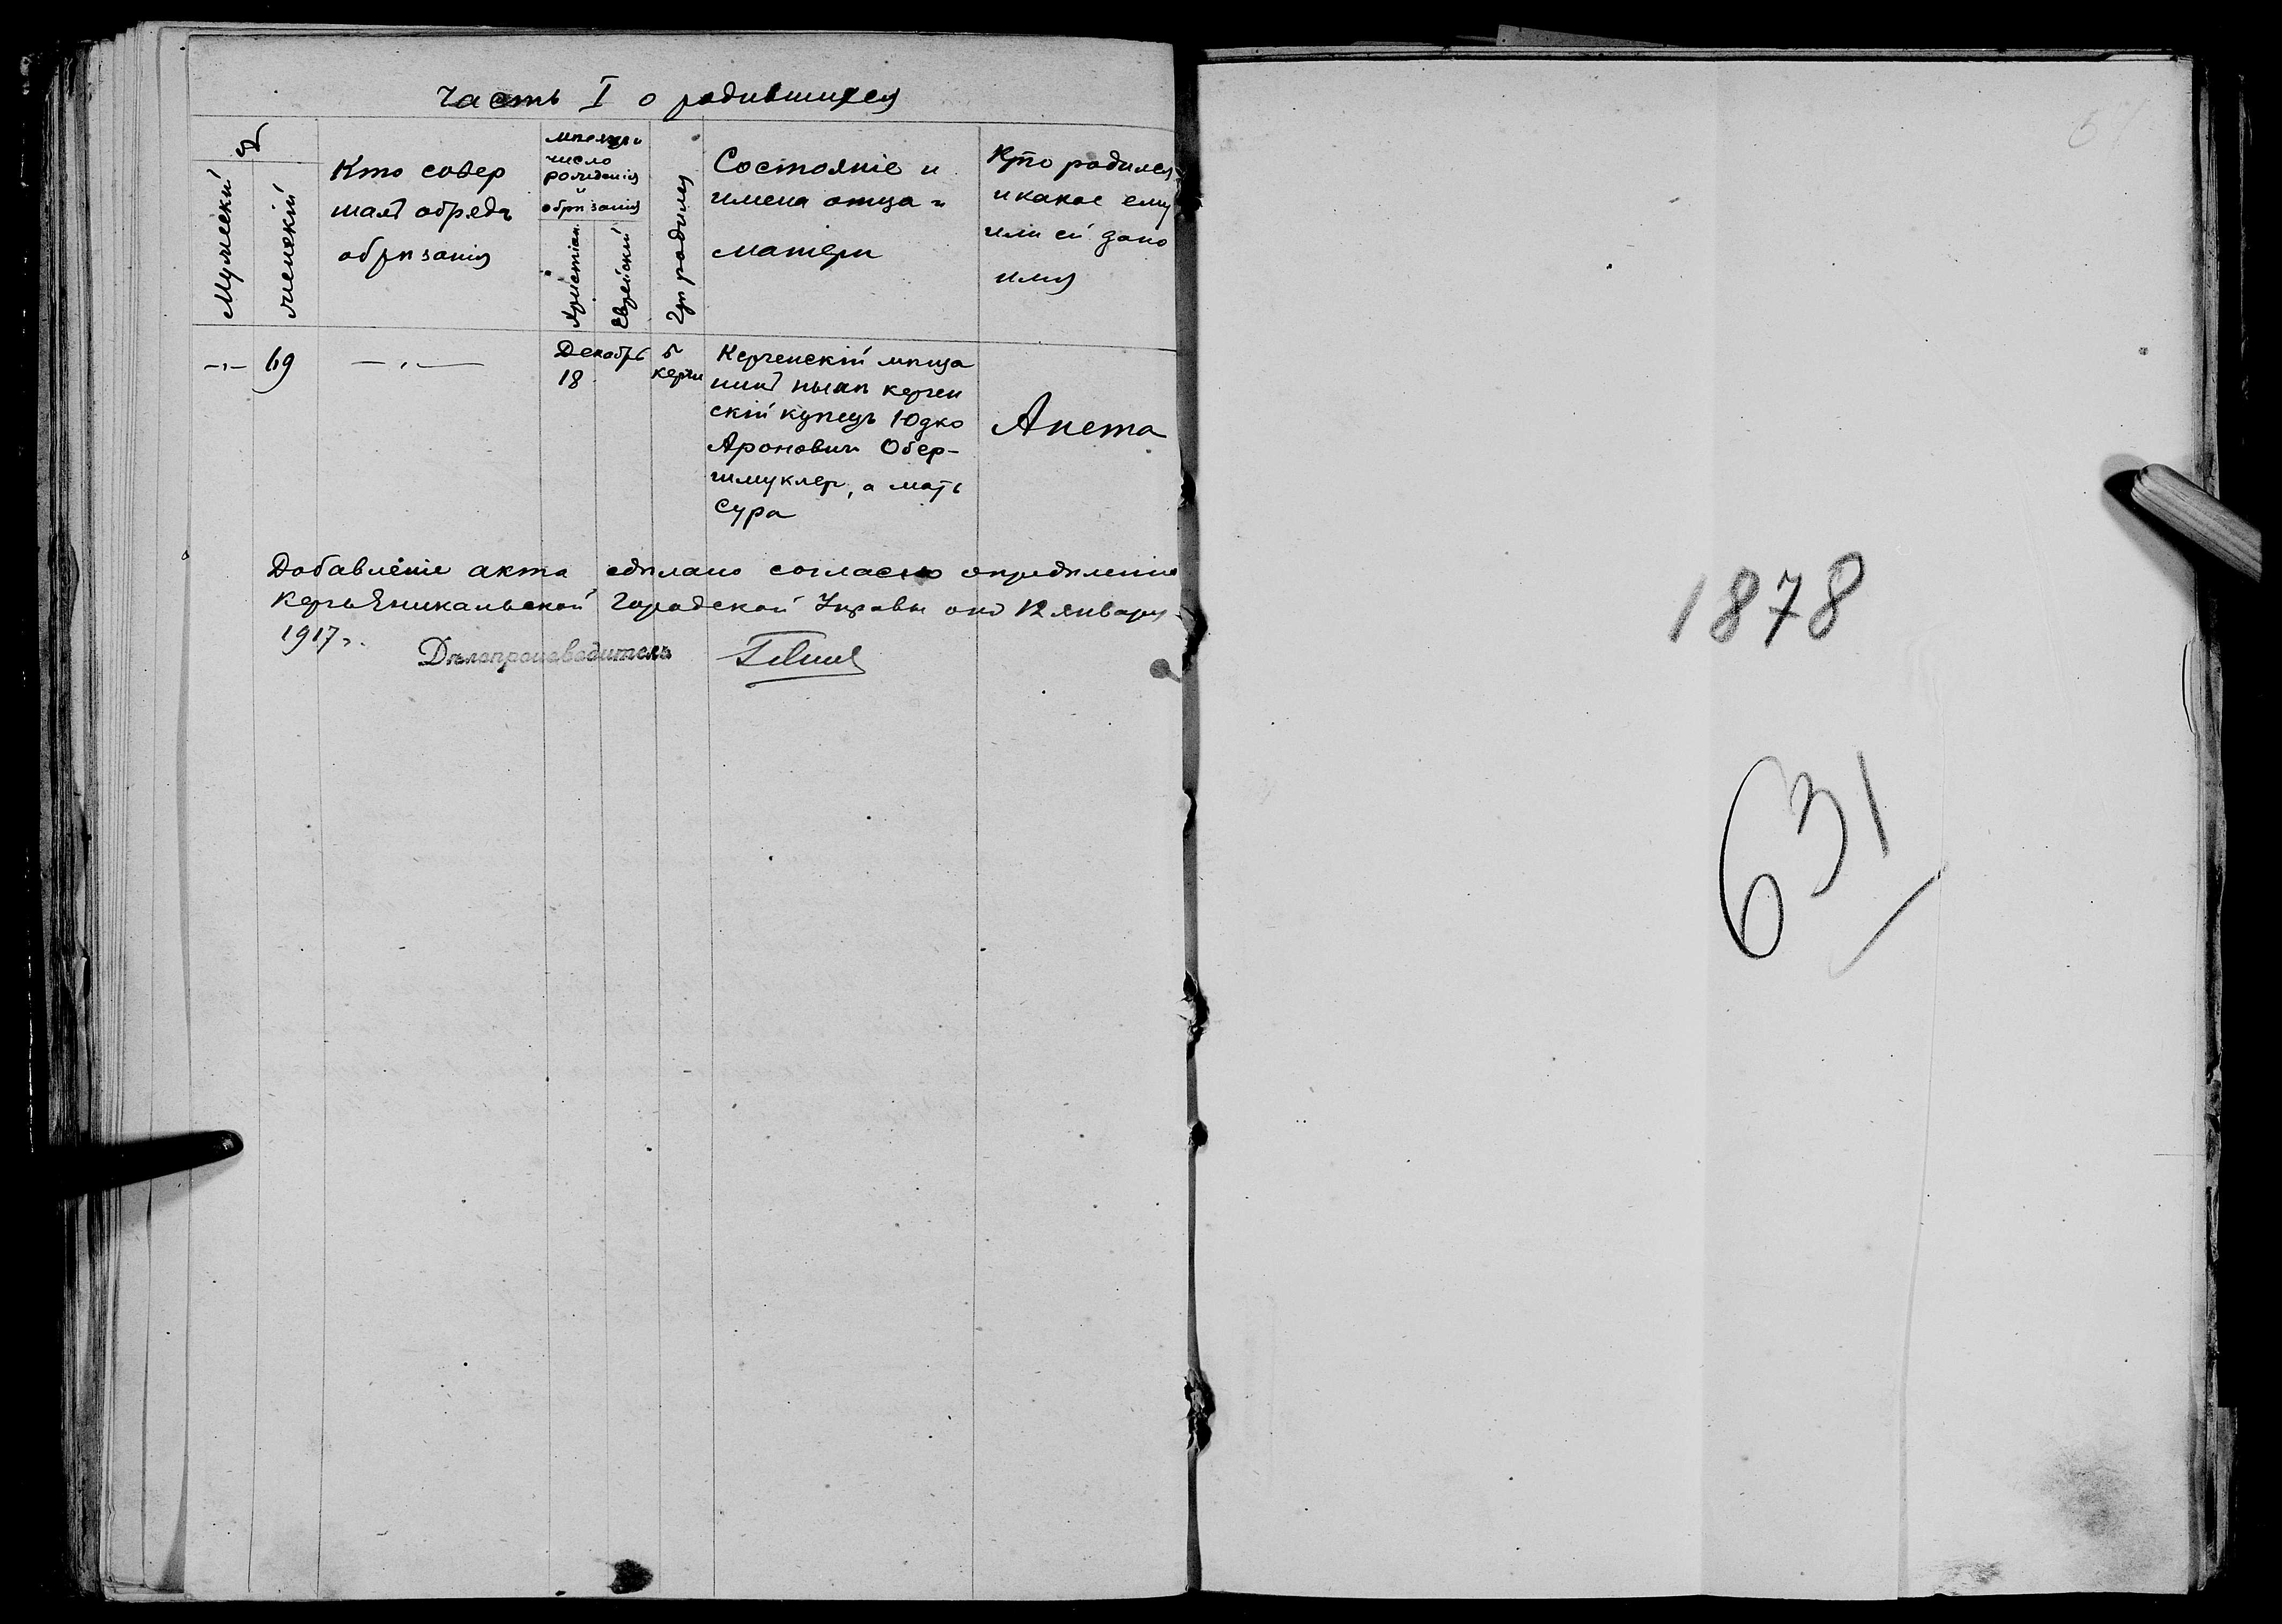 Часть I о родившихся
№
Мужескій
женскій
Кто совер
шалъ обрядъ
обрѣзанія
мѣсяцъ и
число
рожденія
и
обрѣзанія
Христіан.
Еврейскій
Гдѣ родился
Состояніе и
имена отца и
матери
Кто родился
и какое ему
или ей дано
имя
69
Декабрь
18
въ
Керчи
Керченскій мѣща
нинъ нынѣ керчен
скій купецъ Юдко
Ароновичъ Обер-
шмуклер, а мать
Сура
Анета
Добавленіе акта сдѣлано согласно опредѣленія
Керчь Еникальской Городской Управы отъ 12 января
1917 г.
Дѣлопроизводитель
1878
631